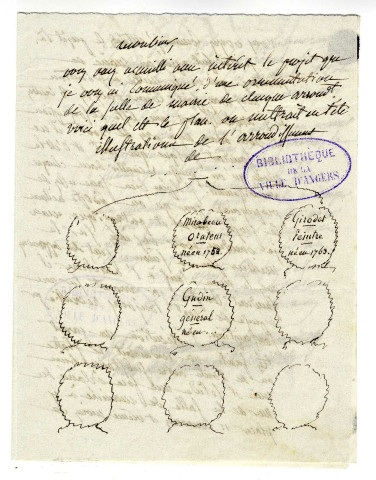 Monsieur,
vous avez accueilli avec intérêt le projet que
je vous ai communiqué, d'une ornementation
de la salle de mairie de chaque arrondt
voici quel est le plan. on mettrait en tête
illustrations de l'arrondissement
de
BIBLIOTHÈQUE
DE LA
VILLE D'ANGERS
Mirabeau
Orateur
né en 175
Girodet
Peintre
né en 176
Gudin
général
né en